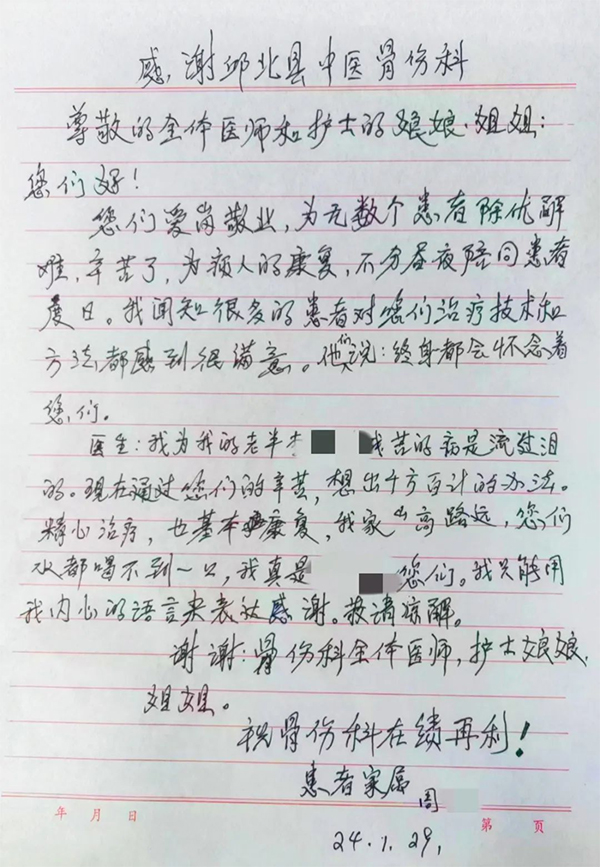 感谢邱北县中医骨伤科
尊敬的全体医师和护士的娘娘.姐姐:
您们好!
您们爱岗敬业,为无数个患者除忧解
难,辛苦了,为病人的康复,不分昼夜陪同患者
度日。我闻知很多的患者对您们治疗技术和
方法都感到很满意。他们说:终身都会怀念着
您们。
医生:我为我的老半 苦的病是流过泪
的。现在通过您们的辛苦,想出千方百计的办法。
精心治疗,也基本康复,我家山高路远,您们
水都喝不到一口,我真是 您们。我只能用
我内心的语言来表达感谢。敬请谅解。
谢谢:骨伤科全体医师,护士娘娘.
姐姐。
祝骨伤科在绩再利!
患者家属 周
年 月 日
第 页
24.1.29,